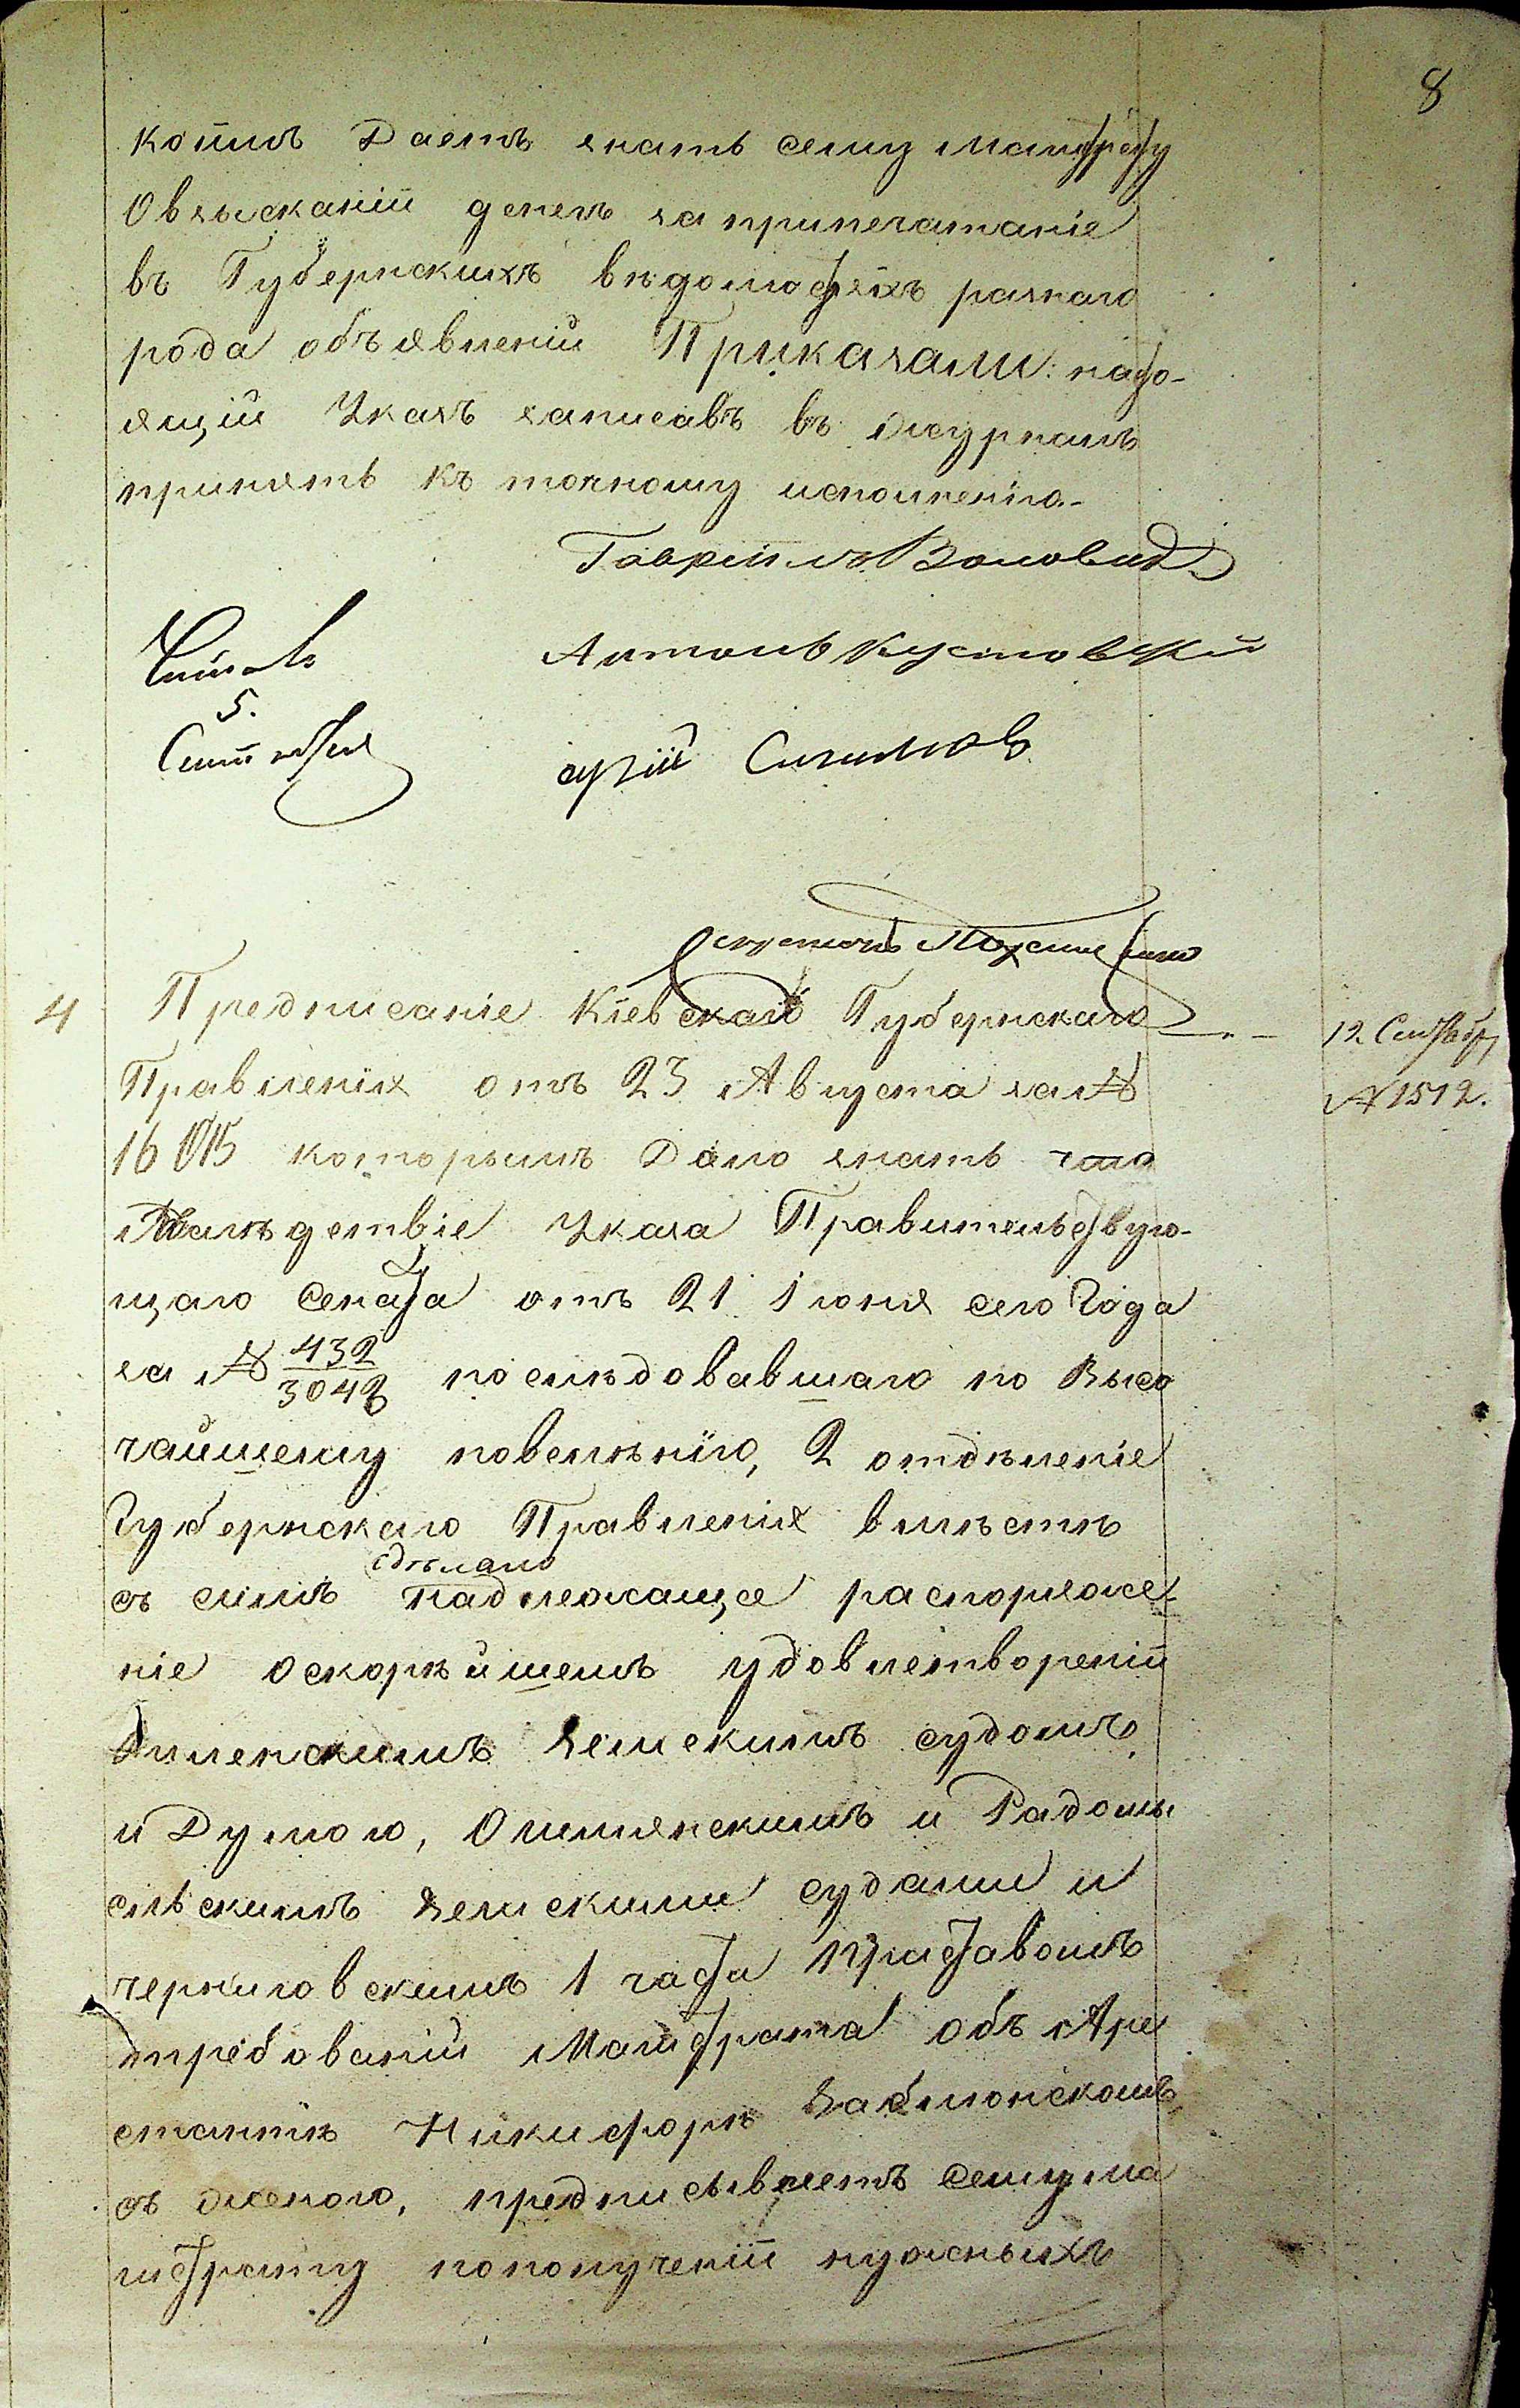 8
коимъ Даетъ знать сему Магистрату
О взысканіи денегъ за припечатаніе
въ Губернскихъ вѣдомостяхъ разнаго
рода объявленій Приказали: насто-
ящій Указъ записавъ въ журналъ
принять къ точному исполненію.
Гаврiилъ
Антонъ Кустовскій
Читалъ
5.
4 Предписаніе Кіевскаго Губернскаго
12. Сентября
№ 1512.
Правленія отъ 23 Августа за №
16 которымъ Дало знать что
въ слѣдствіе Указа Правительствую-
щаго Сената отъ 21 Іюня сего Года
за № 432/3042 послѣдовавшаго по Высо
чайшему повелѣнію, 2 отдѣленіе
Губернскаго Правленія вмѣстѣ
сдѣлано
съ симъ надлежащее распоряже-
ніе о скорѣйшемъ удовлетвореніи
Земскимъ судомъ
и Думою, Ошмянскимъ и Радомы
сльскимъ Земскими судами и
черниговскимъ 1 части Приставомъ
требованій Магистрата объ Аре
стантѣ Никифорѣ Заблонскомъ
съ женою, предписываетъ Сему Ма
гистрату по полученіи нужныхъ